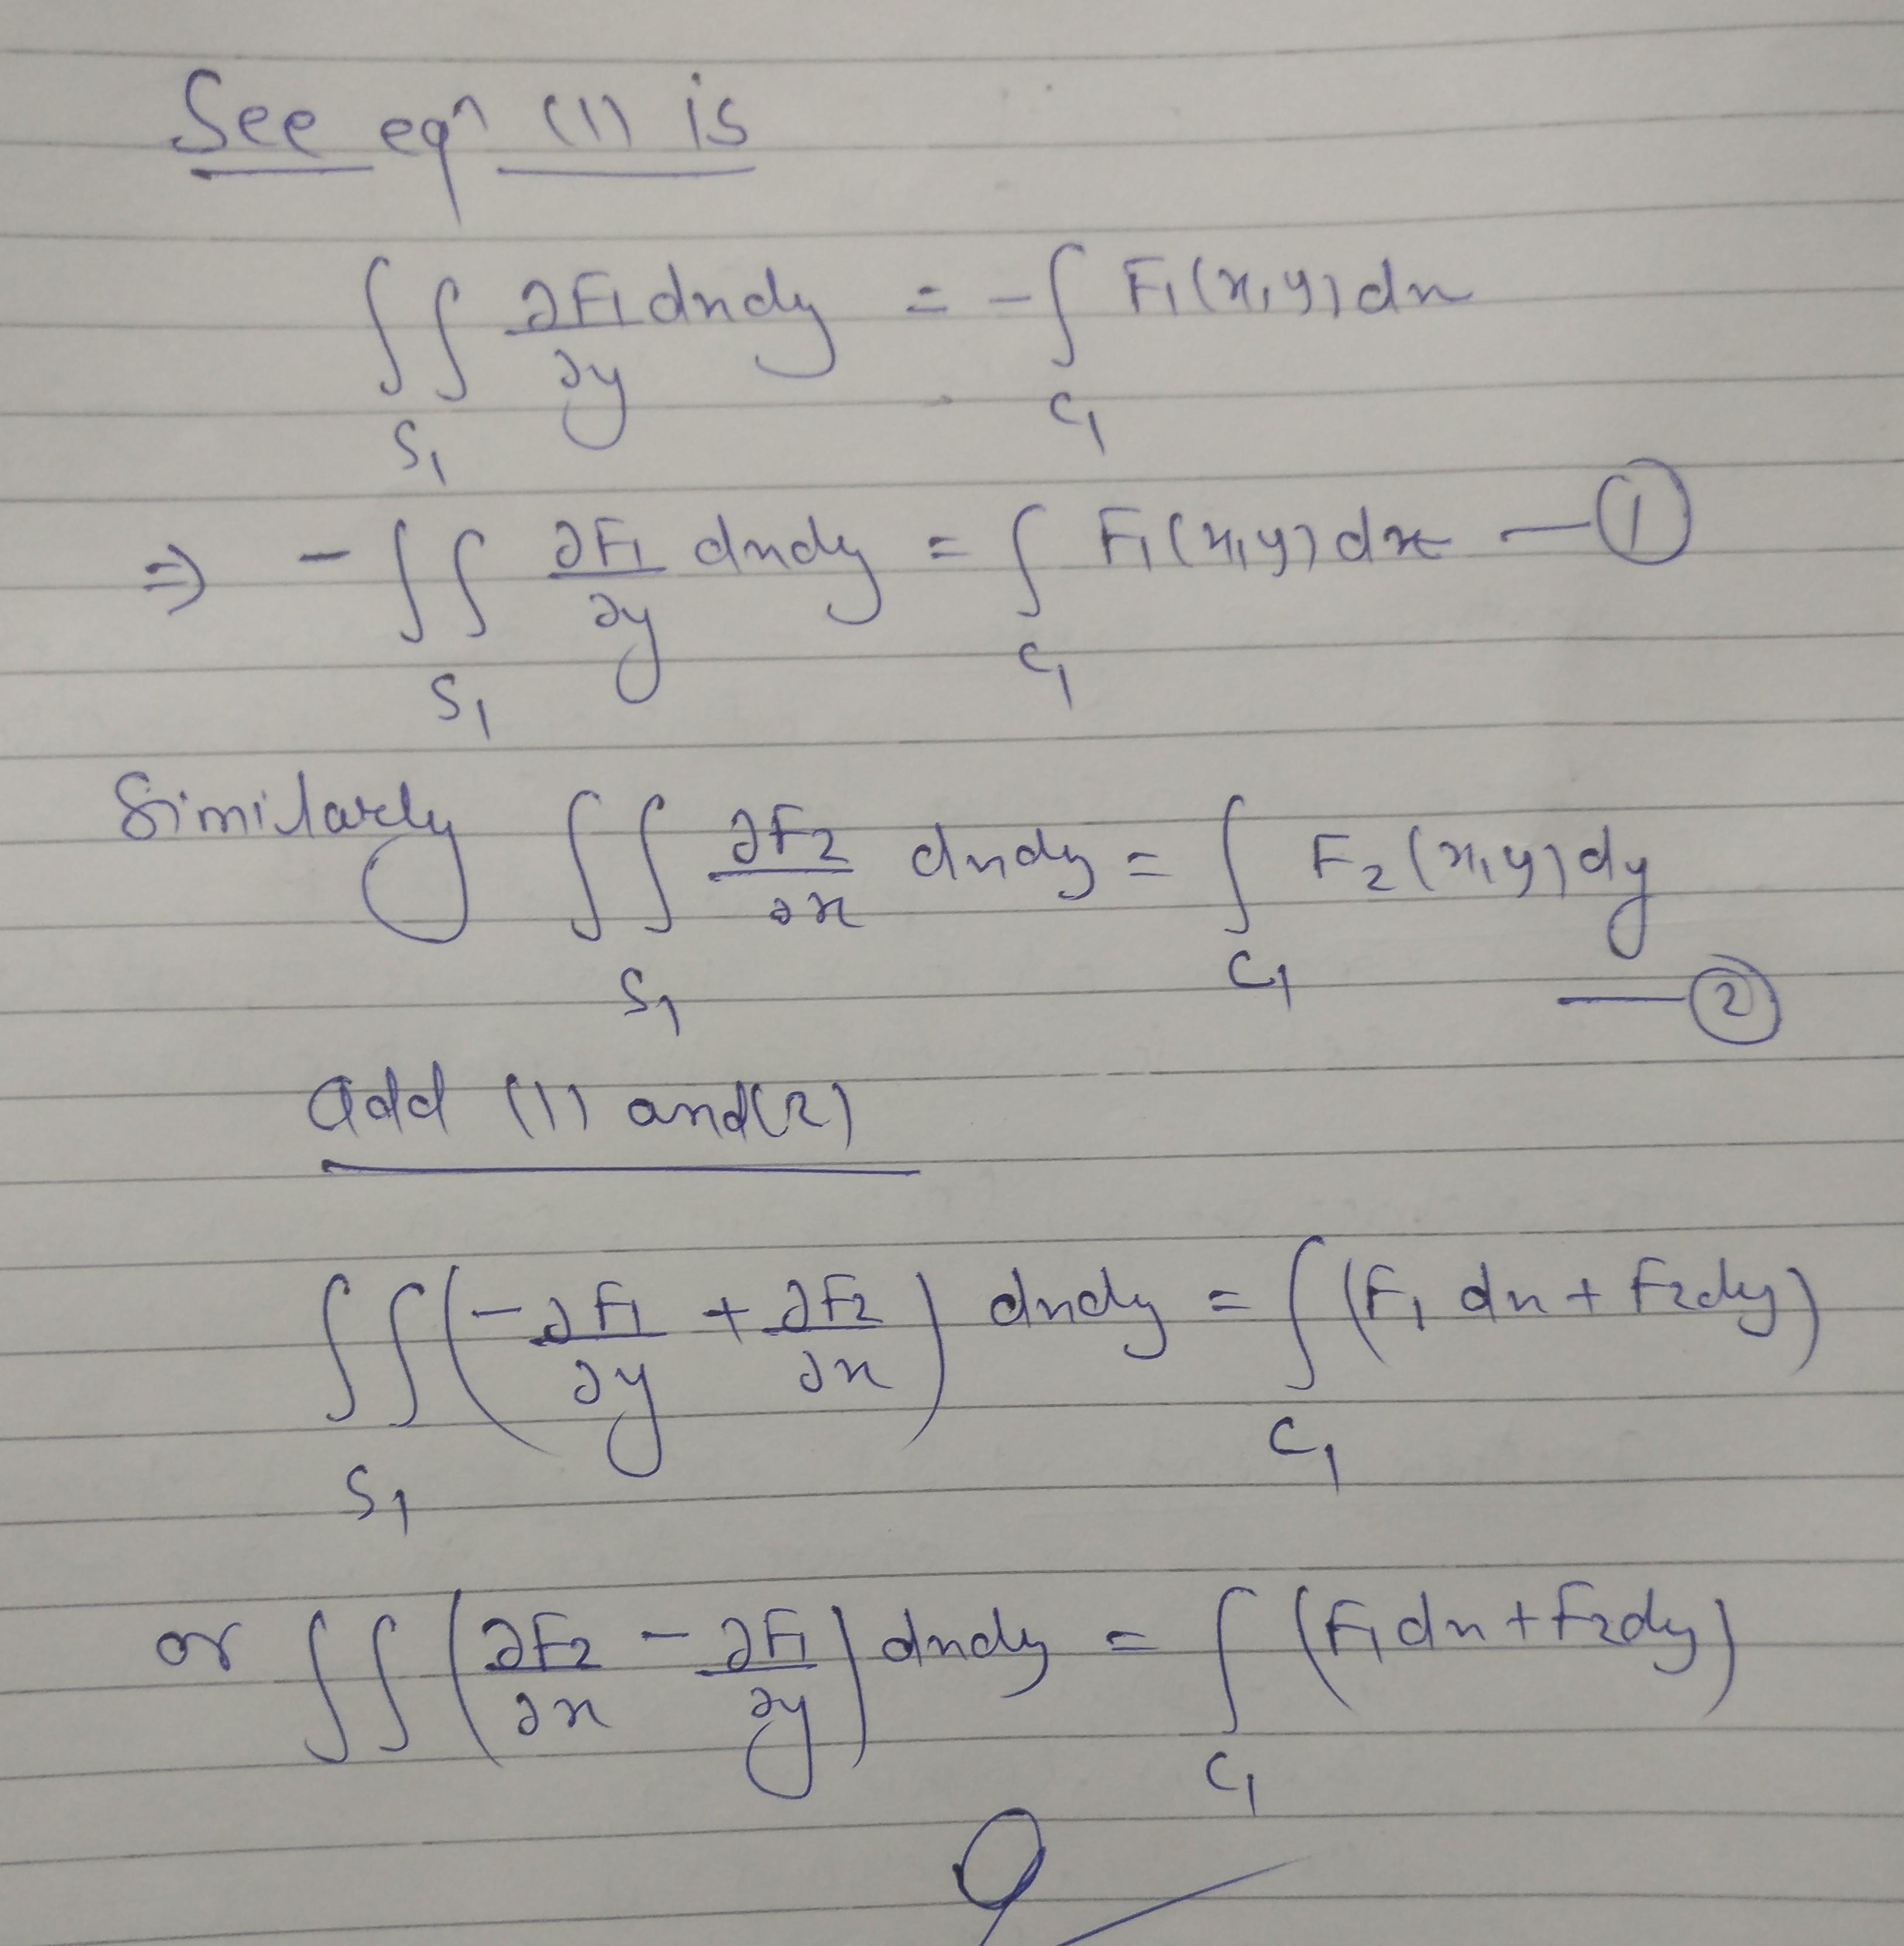 See eqⁿ (1) is
∫∫_{S₁} ∂F₁/∂y dxdy = -∫_{C₁} F₁(x,y)dx
⇒ -∫∫_{S₁} ∂F₁/∂y dxdy = ∫_{C₁} F₁(x,y)dx —①
Similarly ∫∫_{S₁} ∂F₂/∂x dxdy = ∫_{C₁} F₂(x,y)dy
—②
add (1) and (2)
∫∫_{S₁} (-∂F₁/∂y + ∂F₂/∂x) dxdy = ∫_{C₁} (F₁ dx + F₂dy)
or ∫∫ (∂F₂/∂x - ∂F₁/∂y) dxdy = ∫_{C₁} (F₁dx + F₂dy)